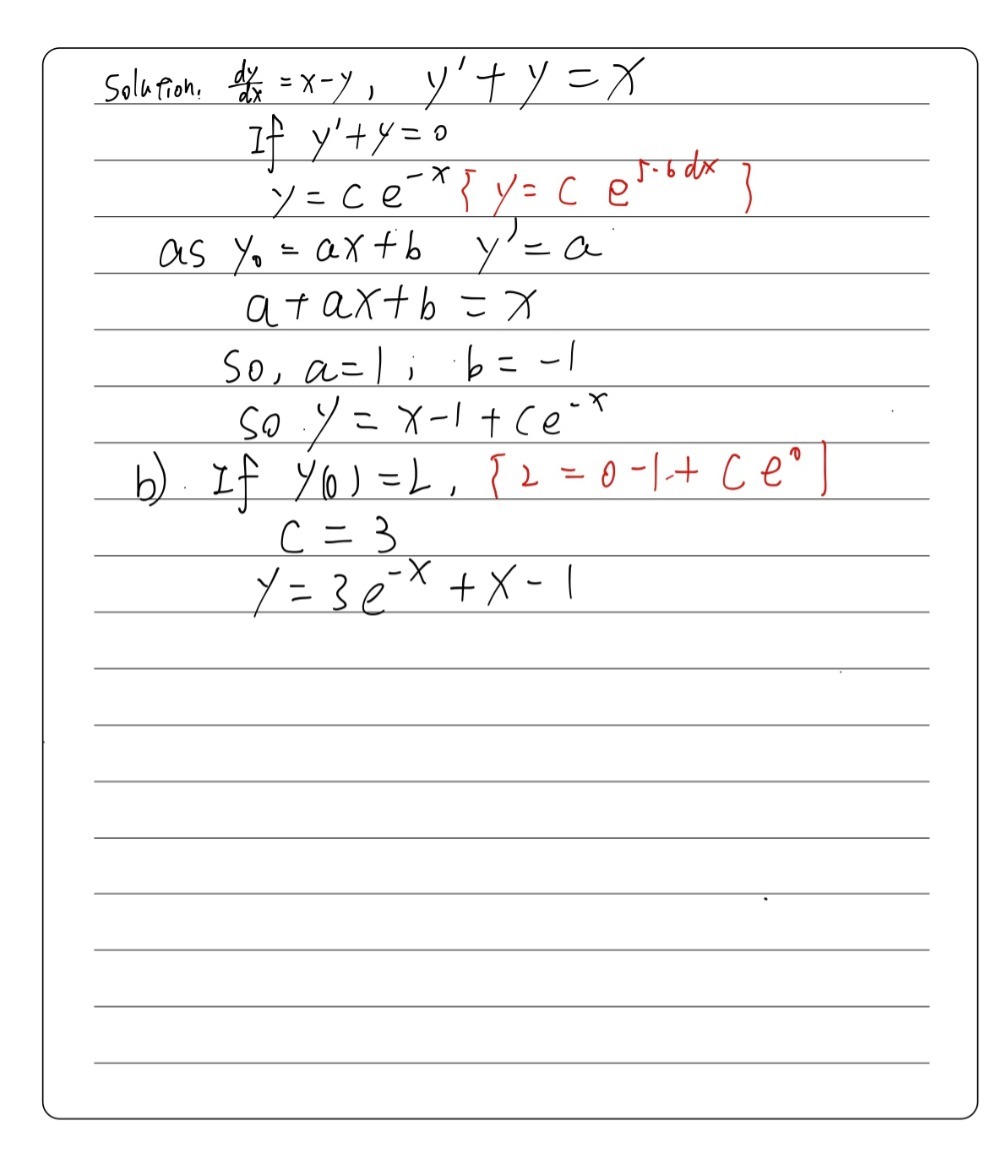 Solution: dy/dx = x-y, y' + y = x
If y'+y=0
y = c e^-x { y = c e^∫-b dx }
as y₀ = ax+b y' = a
a + ax+b = x
So, a=1; b = -1
So y = x-1 + ce^-x
b). If y(0) = 2, [ 2 = 0-1+ C e^0 ]
C = 3
y = 3e^-x + x - 1